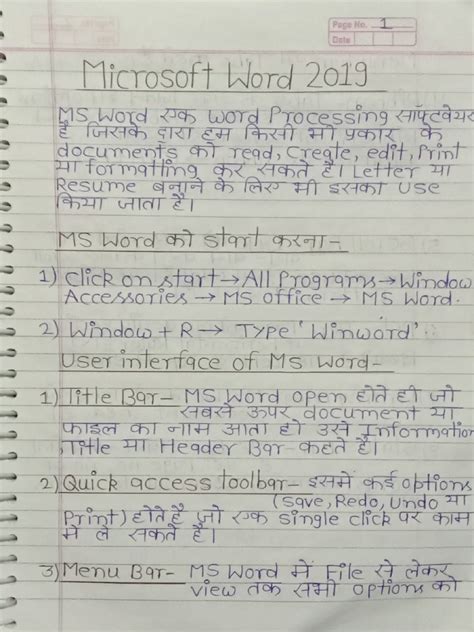 Page No. 1
Date
Microsoft Word 2019
MS Word एक word Processing सॉफ्टवेयर
है जिसके द्वारा हम किसी भी प्रकार के
documents को read, Create, edit, Print
या formatting कर सकते हैं। Letter या
Resume बनाने के लिए भी इसका use
किया जाता है।
MS Word को start करना-
1) Click on start → All Programs → Window
Accessories → MS office → MS Word.
2) Window + R → Type 'Winword'
User interface of MS Word-
1) Title Bar- MS Word open होते ही जो
सबसे ऊपर document या
फाइल का नाम आता हो उसे Information
,Title या Header Bar- कहते हैं।
2) Quick access toolbar- इसमें कई options
(save, Redo, Undo या
Print) होते हैं जो एक single click पर काम
में ले सकते हैं।
3) Menu Bar- MS Word में File से लेकर
view तक सभी options को